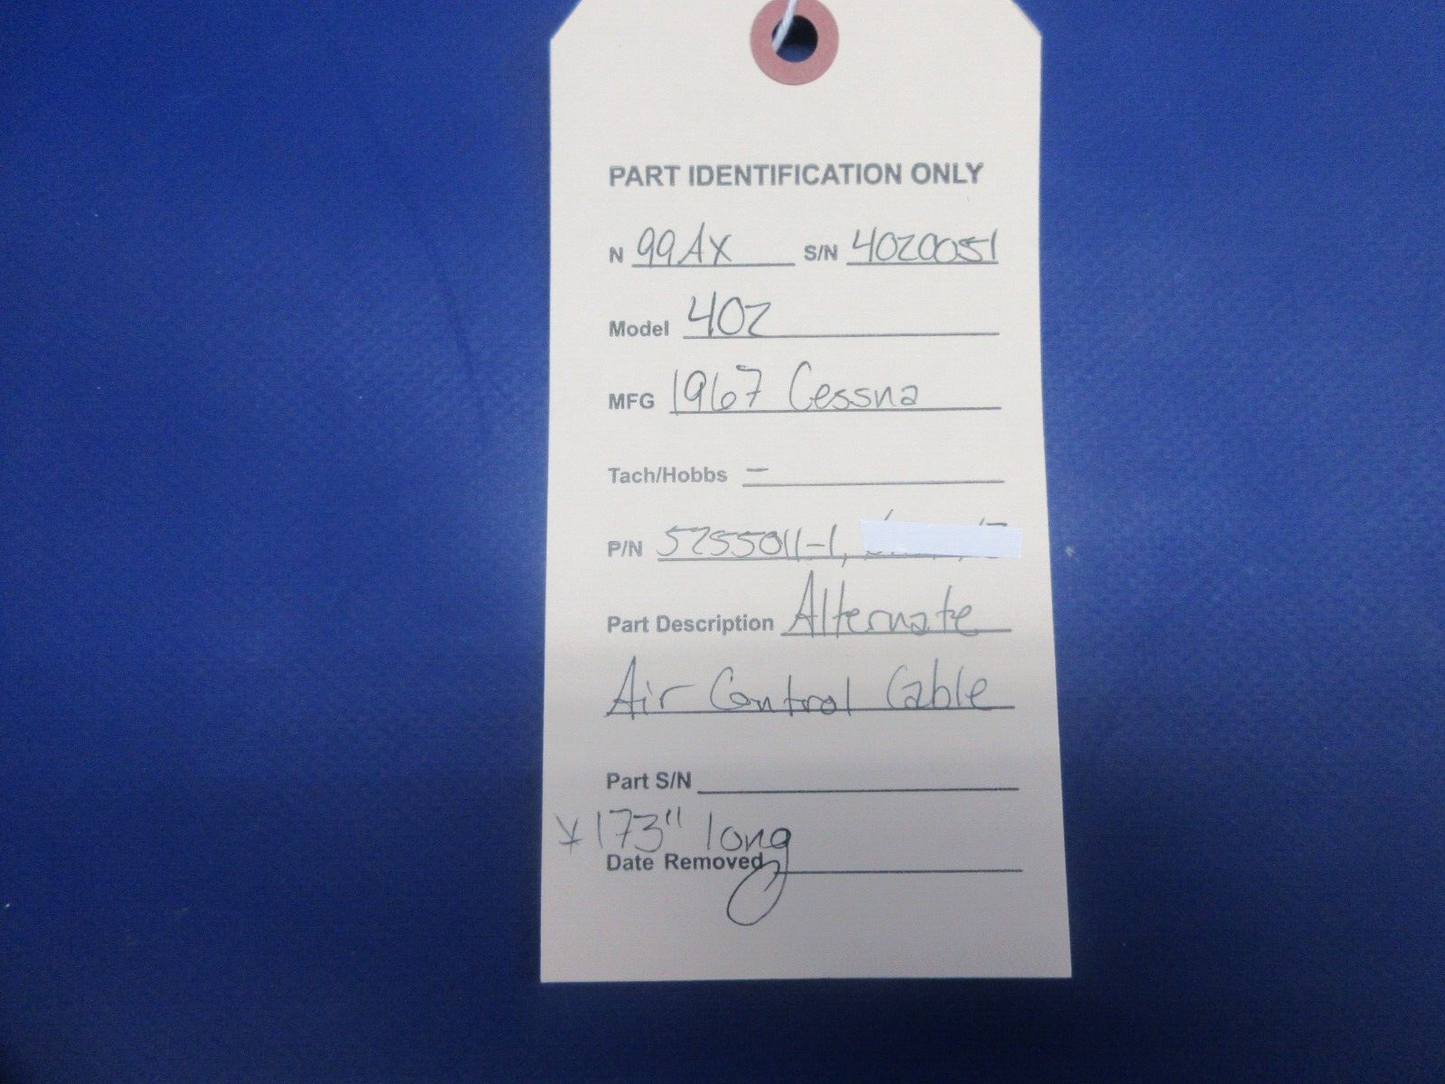 PART IDENTIFICATION ONLY
N 99AX S/N 4020051
Model 402
MFG 1967 Cessna
Tach/Hobbs —
P/N 5255011-1,
Part Description Alternate
Air Control Cable
Part S/N
* 173" long
Date Removed